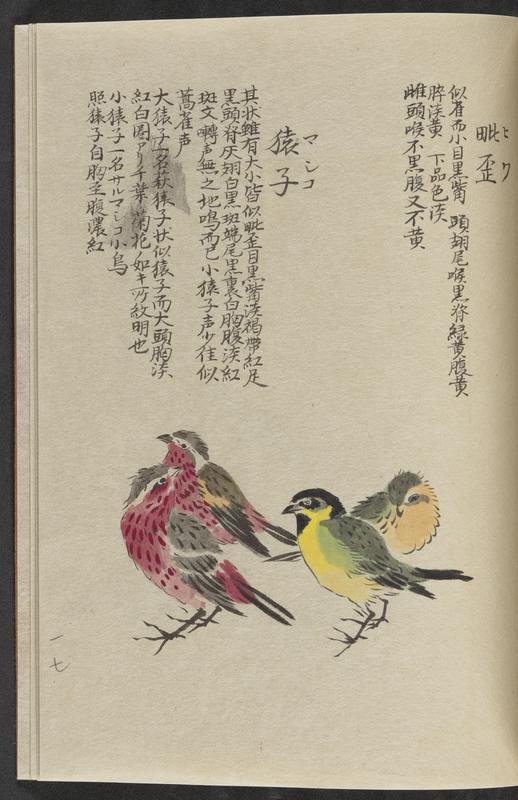 ヒワ
鴟歪
似雀而小目黒觜 頭翅尾喉黒脊緑黄腹黄
脺淡黄 下品色淡
雌頭喉不黒腹又不黄
マシコ
猿子
其状雖有大小皆似鴟歪目黒觜淡褐帶紅足
黒頭脊灰翅白黒斑端尾黒裏白胸腹淡紅
斑文囀声無之地鳴而已小猿子声少佳似
蒿雀声
大猿子一名萩猿子状似猿子而大頭胸淡
紅白圏アリ千葉ノ菊花ノ如キ所紋明也
小猿子一名サルマシコ小鳥
照猿子自胸至腹濃紅
一七